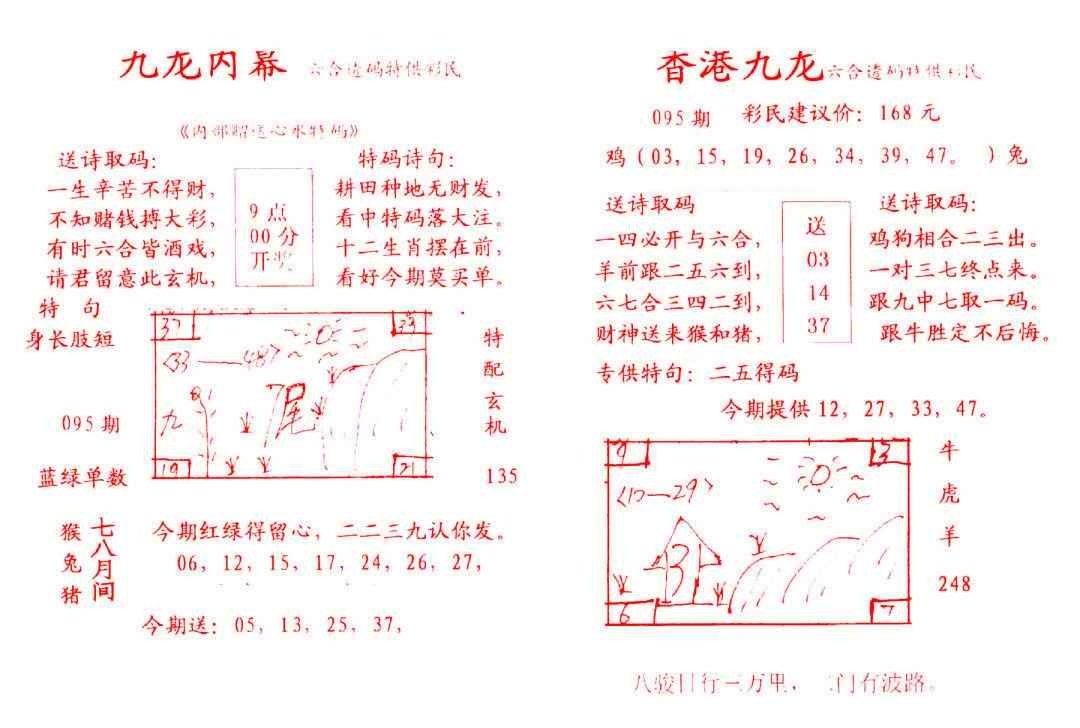 九龙内幕 六合透码特供彩民
送诗取码：
一生辛苦不得财，
不知赌钱搏大彩，
有时六合皆酒戏，
请君留意此玄机，
9点
00分
开奖
特码诗句：
耕田种地无财发，
看中特码落大注。
十二生肖摆在前，
看好今期莫买单。
特 句
身长肢短
095期
蓝绿单数
37
33
<33—48>
九
尾
19
21
特
配
玄
机
135
猴
兔
猪
七八月间
今期红绿得留心，二二三九认你发。
06，12，15，17，24，26，27，
今期送：05，13，25，37，
香港九龙 六合透码特供彩民
095期 彩民建议价：168元
鸡（03，15，19，26，34，39，47。 ）兔
送诗取码
一四必开与六合，
羊前跟二五六到，
六七合三四二到，
财神送来猴和猪，
送
03
14
37
送诗取码：
鸡狗相合二三出。
一对三七终点来。
跟九中七取一码。
跟牛胜定不后悔。
专供特句：二五得码
今期提供12，27，33，47。
9
3
<17—29>
3
6
7
牛
虎
羊
248
八骏日行三万里， 门有波路。